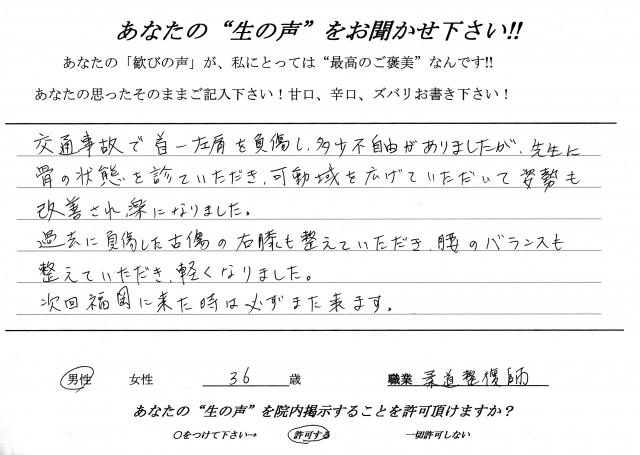 あなたの“生の声”をお聞かせ下さい!!
あなたの「歓びの声」が、私にとっては“最高のご褒美”なんです!!
あなたの思ったそのままご記入下さい！甘口、辛口、ズバリお書き下さい！
交通事故で首－左肩を負傷し、多少不自由がありましたが、先生に
骨の状態を診ていただき、可動域を広げていただいて姿勢も
改善され楽になりました。
過去に負傷した古傷の右膝も整えていただき、腰のバランスも
整えていただき、軽くなりました。
次回福岡に来た時は必ずまた来ます。
男性 女性 36 歳 職業 柔道整復師
あなたの“生の声”を院内掲示することを許可頂けますか？
○をつけて下さい→ 許可する 一切許可しない